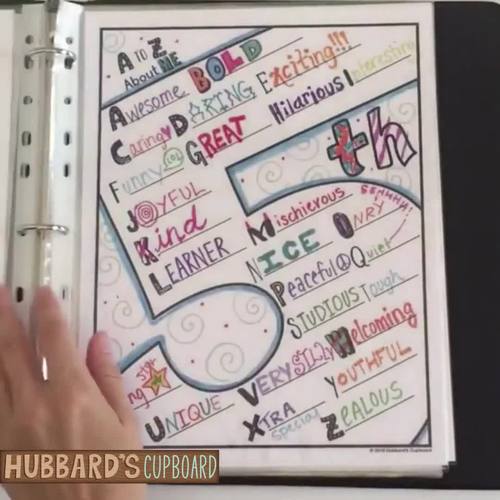 A TO Z
About ME
Awesome BOLD
Caring DARING Exciting!!!
Funny LOL GREAT Hilarious Interesting
JOYFUL 5th
Kind Mischievous
LEARNER NICE ONRY
SHHHH!
Peaceful Quiet
STUDIOUS Tough
star
UNIQUE VERY SILLY Welcoming
XTRA special YOUTHFUL
ZEALOUS
© 2016 Hubbard's Cupboard
HUBBARD'S CUPBOARD